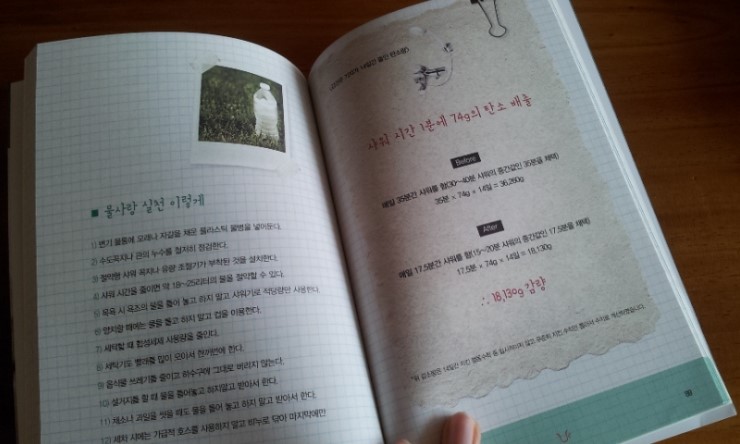 ■ 물사랑 실천 이렇게
1) 변기 물통에 모래나 자갈을 채운 플라스틱 물병을 넣어둔다.
2) 수도꼭지나 관의 누수를 철저히 점검한다.
3) 절약형 샤워 꼭지나 유량 조절기가 부착된 것을 설치한다.
4) 샤워 시간을 줄이면 약 18~25리터의 물을 절약할 수 있다.
5) 목욕 시 욕조의 물을 틀어 놓고 하지 말고 샤워기로 적당량만 사용한다.
6) 양치할 때에는 물을 틀고 하지 말고 컵을 이용한다.
7) 세탁할 때 합성세제 사용량을 줄인다.
8) 세탁기도 빨래를 많이 모아서 한꺼번에 한다.
9) 음식물 쓰레기를 줄이고 하수구에 그대로 버리지 않는다.
10) 설거지를 할 때 물을 틀어놓고 하지말고 받아서 한다.
11) 채소나 과일을 씻을 때도 물을 틀어 놓고 하지 말고 받아서 한다.
12) 세차 시에는 가급적 호스를 사용하지 말고 비누로 닦아 마지막에만
14일간 줄인 탄소량
샤워 시간 1분에 74g의 탄소 배출
Before
매일 35분간 샤워를 함(30~40분 샤워의 중간값인 35분을 채택)
35분 × 74g × 14일 = 36,260g
After
매일 17.5분간 샤워를 함(15~20분 샤워의 중간값인 17.5분을 채택)
17.5분 × 74g × 14일 = 18,130g
∴ 18,130g 감량